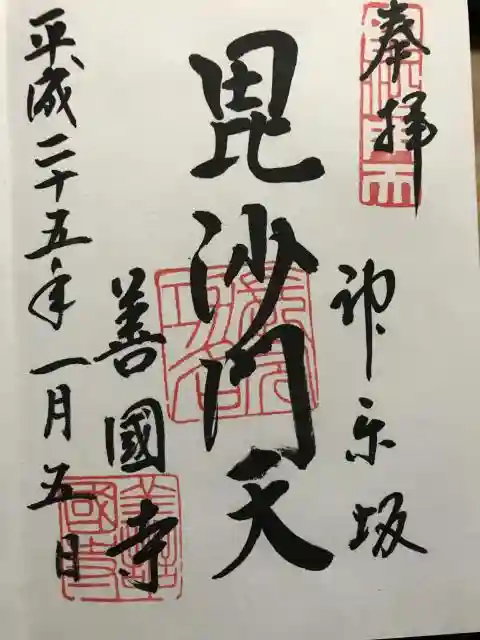 奉拝
神楽坂
毘沙門天
善國寺
平成二十五年一月五日